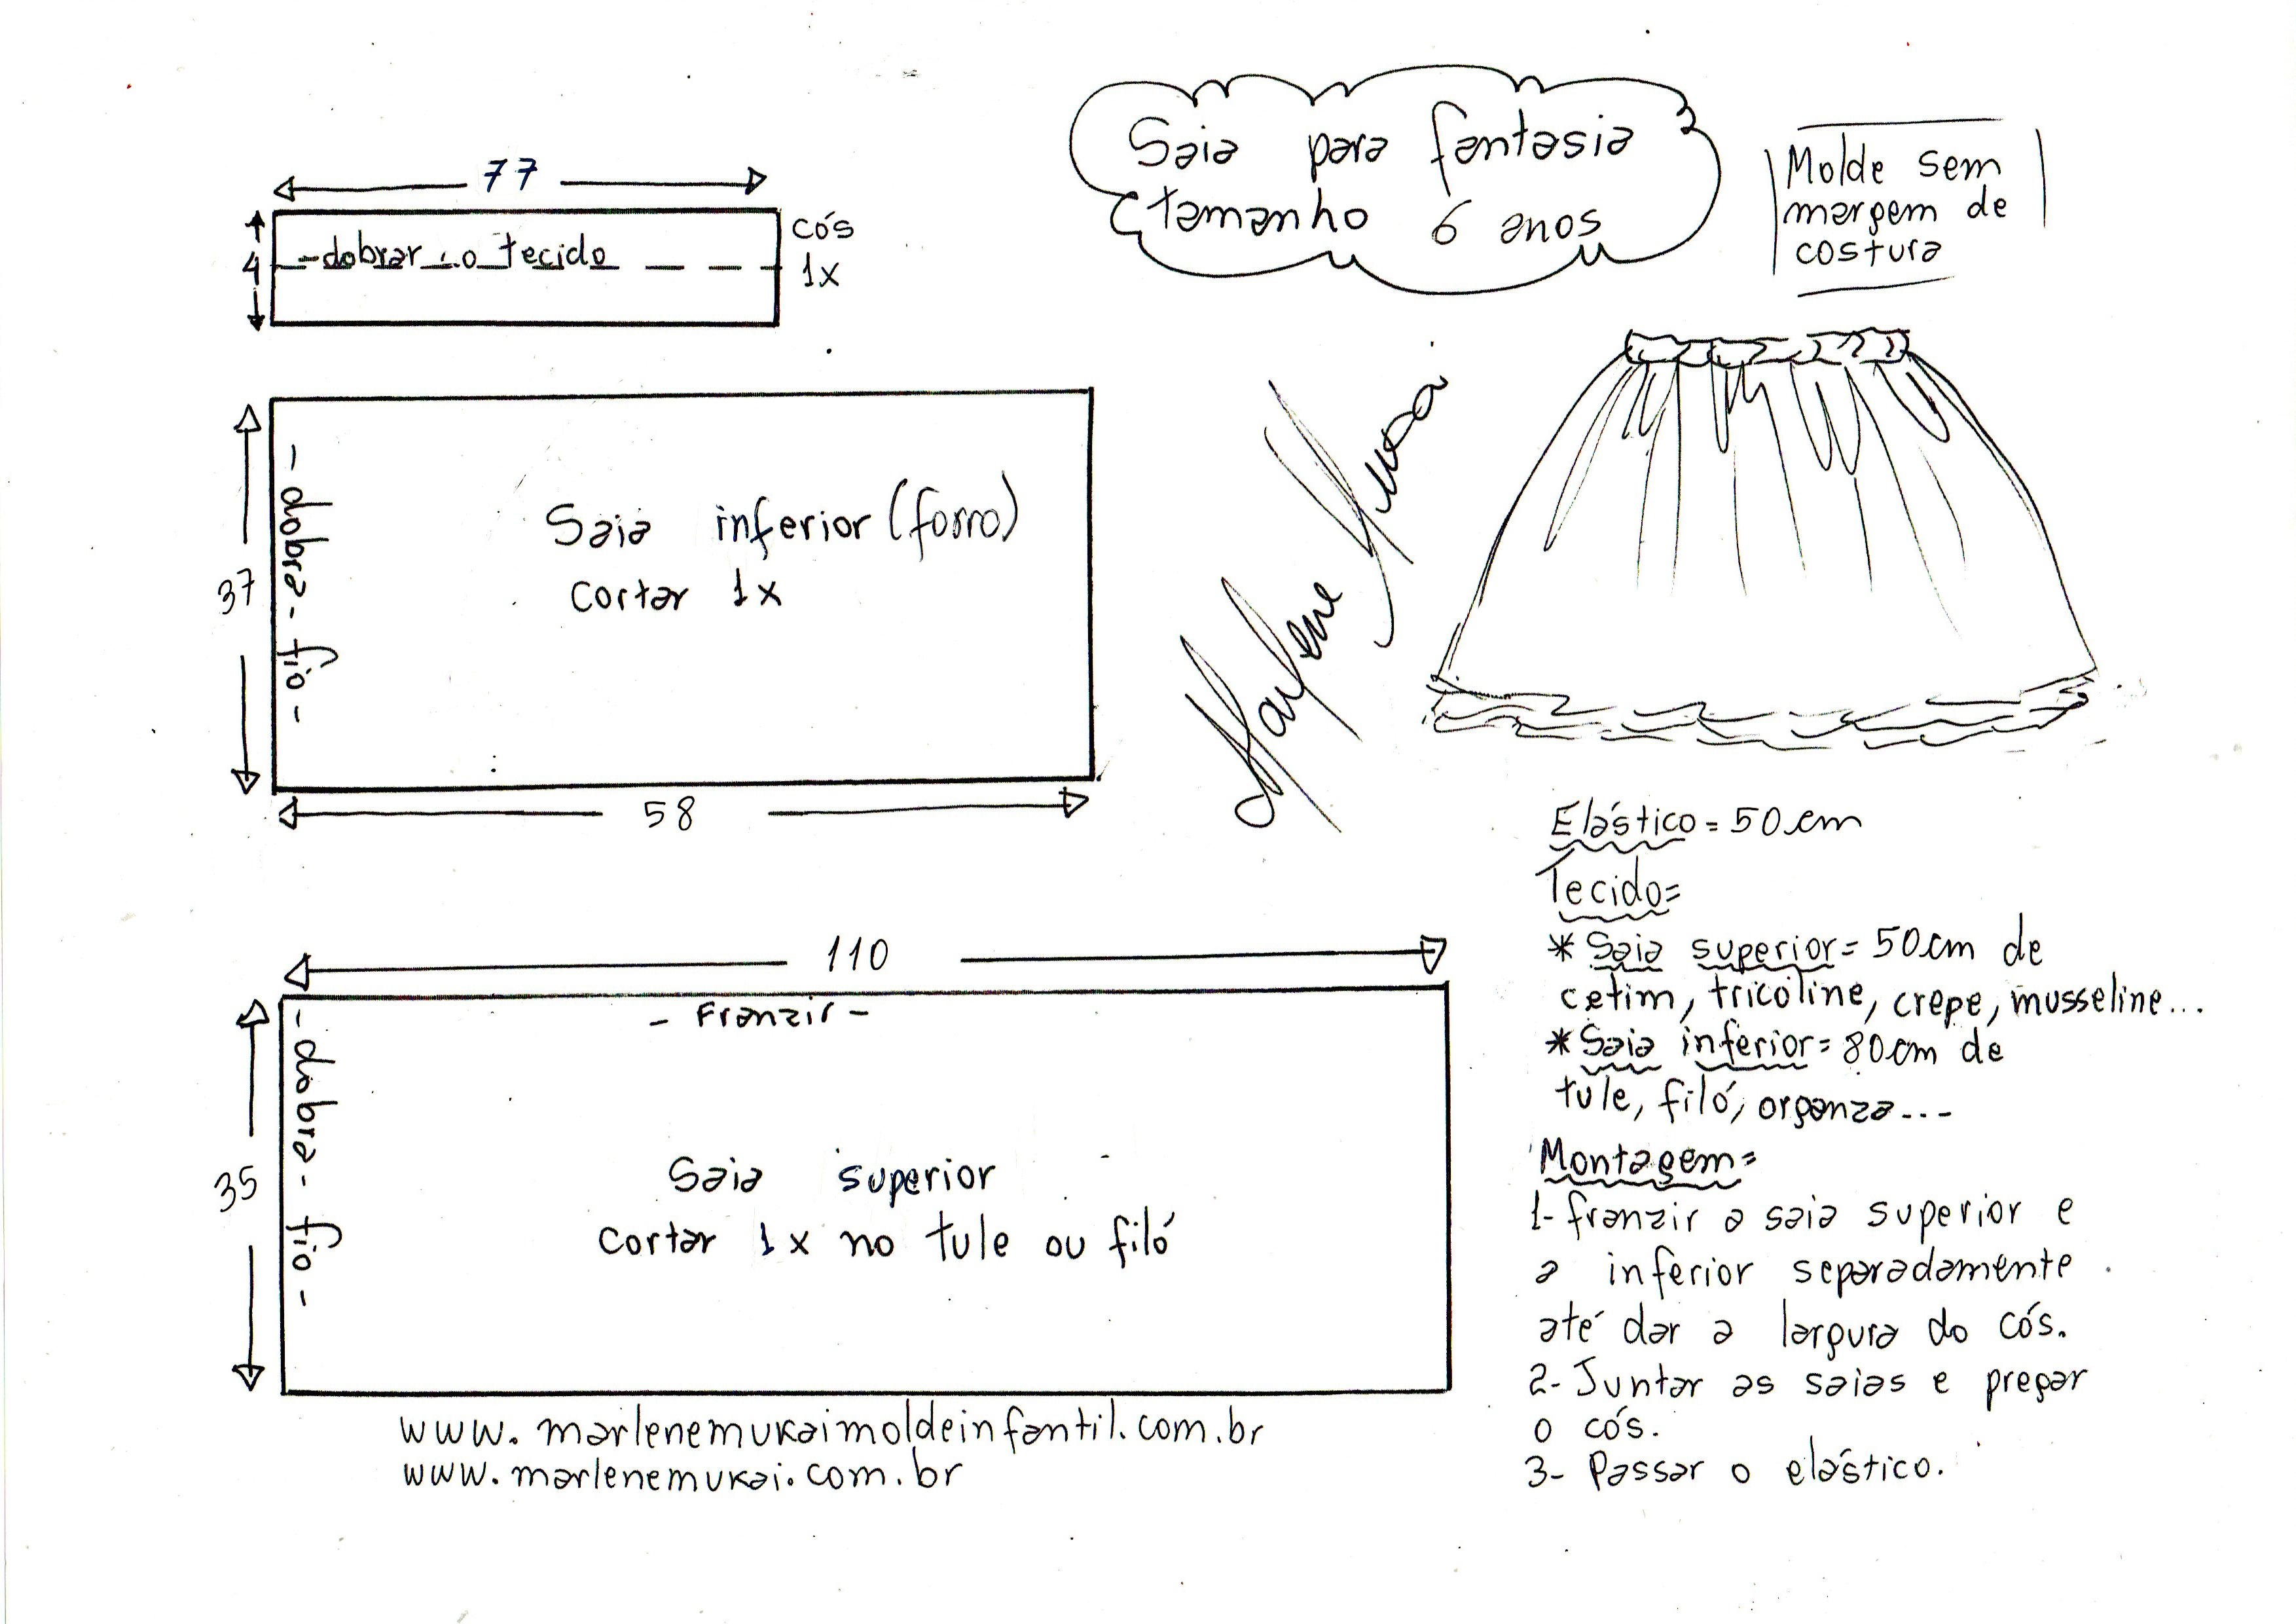 Saia para fantasia
tamanho 6 anos
Molde sem
margem de
costura
77
4
-dobrar o tecido
cós
1x
37
- dobra - fio -
Saia inferior (forro)
cortar 1x
58
Marlene Mukai
110
35
- Franzir -
- dobra - fio -
Saia superior
cortar 1x no tule ou filó
www.marlenemukaimoldeinfantil.com.br
www.marlenemukai.com.br
Elástico = 50cm
Tecido=
* Saia superior= 50cm de
cetim, tricoline, crepe, musseline...
* Saia inferior= 80cm de
tule, filó, organza...
Montagem=
1- franzir a saia superior e
a inferior separadamente
até dar a largura do cós.
2- Juntar as saias e pregar
o cós.
3- Passar o elástico.